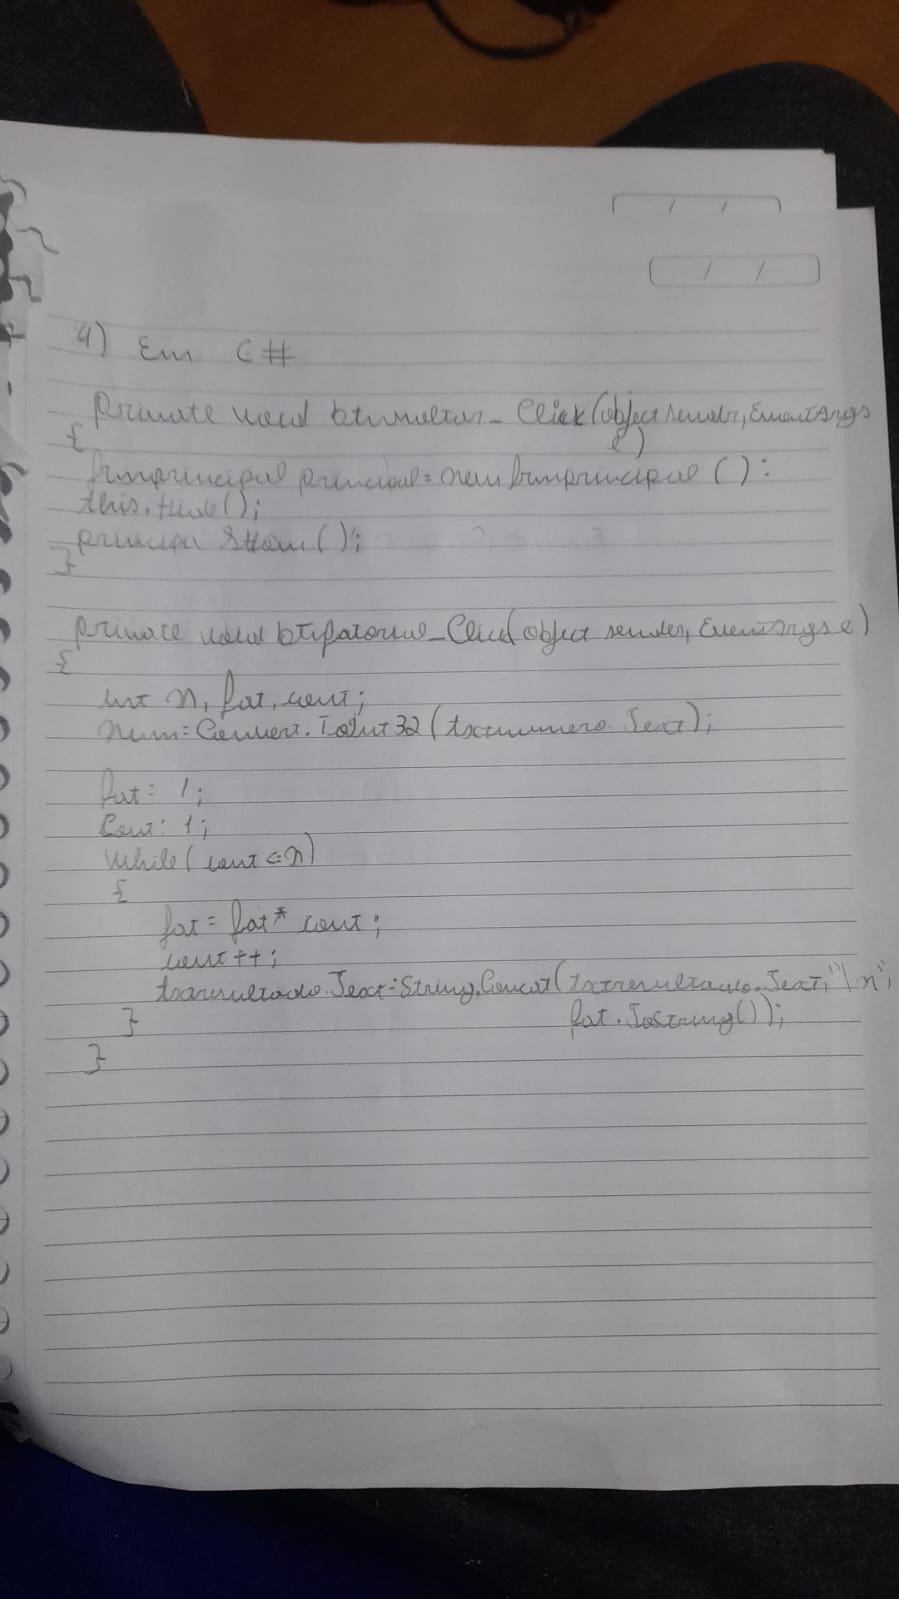 4) Em C#
private void btnvoltar_Click(object sender, EventArgs
e)
{
frmprincipal principal = new frmprincipal ():
this.Hide();
princip Show();
}
private void btnfatorial_Click(object sender, EventArgs e)
{
int n, fat, cont;
num = Convert.ToInt32 (txtnumero.Text);
fat = 1;
Cont = 1;
while (cont <= n)
{
fat = fat * cont;
cont ++;
txtresultado.Text = String.Concat (txtresultado.Text, "\n",
fat.ToString());
}
}